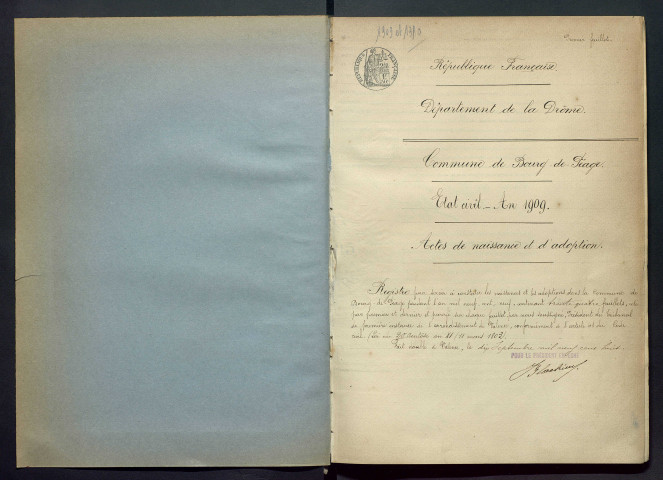 1909 et 1910
Premier feuillet.
RÉPUBLIQUE FRANÇAISE
République Française.
Département de la Drôme.
Commune de Bourg de Péage.
Etat civil - An 1909.
Actes de naissance et d'adoption.
Registre pour servir à constater les naissances et les adoptions dans la commune de
Bourg de Péage pendant l'an mil neuf cent neuf, contenant trente quatre feuillets, coté
par premier et dernier et paraphé sur chaque feuillet par nous soussigné, Président du tribunal
de première instance de l'arrondissement de Valence, conformément à l'article 41 du Code
civil
Fait à Valence, le dix Septembre mil neuf cent huit.
POUR LE PRÉSIDENT EMPÊCHÉ